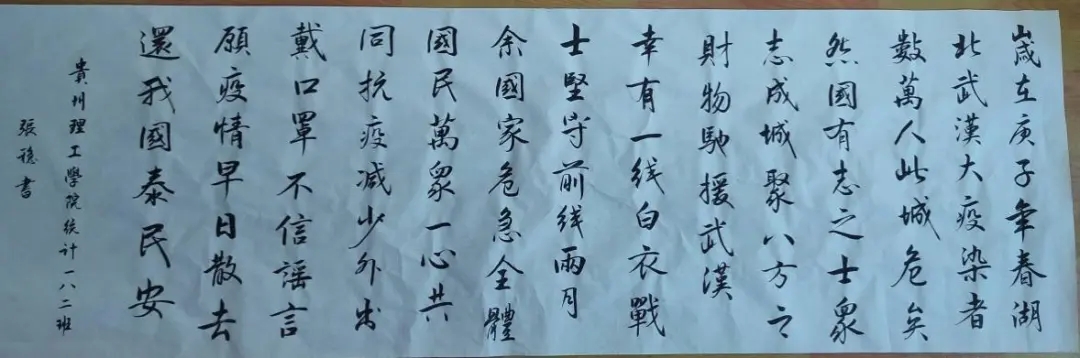 歲在庚子年春湖
北武漢大疫染者
數萬人此城危矣
然國有志之士眾
志成城聚八方之
財物馳援武漢
幸有一线白衣戰
士堅守前线兩月
余國家危急全體
國民萬眾一心共
同抗疫減少外出
戴口罩不信謠言
願疫情早日散去
還我國泰民安
貴州理工學院统计一八二班
張穩書